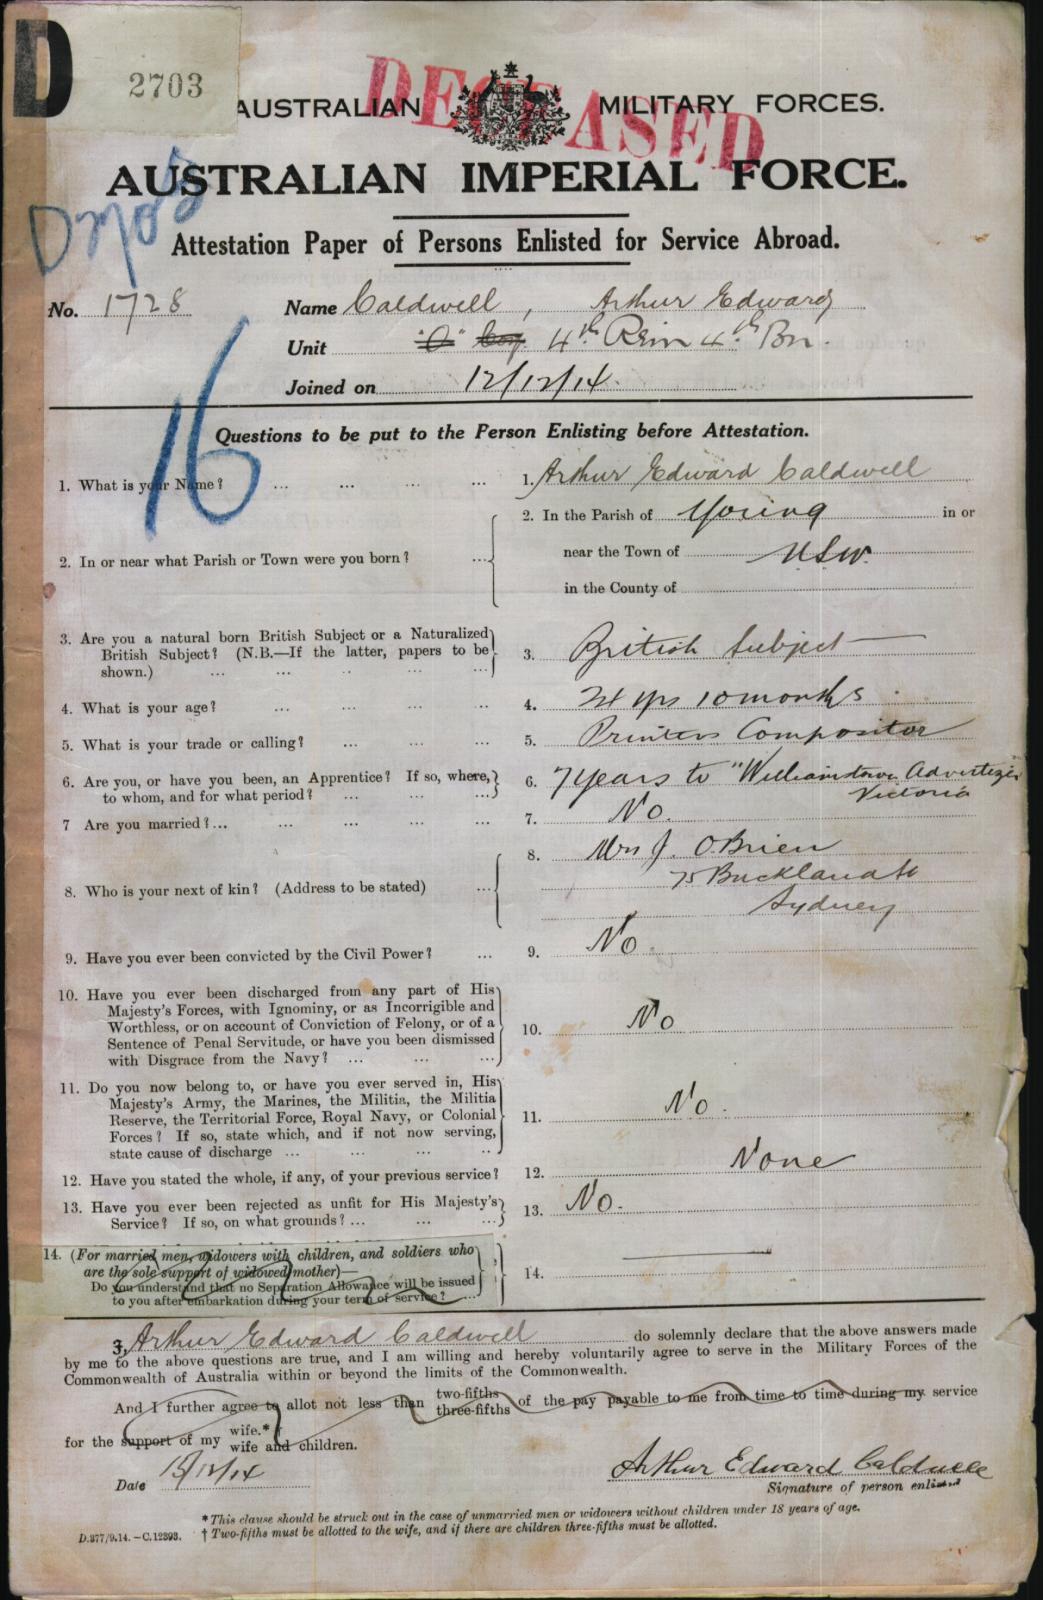 D
2703
DECEASED
AUSTRALIAN MILITARY FORCES.
AUSTRALIAN IMPERIAL FORCE.
D2703
Attestation Paper of Persons Enlisted for Service Abroad.
No. 1728 Name Caldwell, Arthur Edward
Unit "O" Coy. 4th Rein 4th Bn.
Joined on 12/12/14.
16
Questions to be put to the Person Enlisting before Attestation.
1. What is your Name? ... ... ... ... 1. Arthur Edward Caldwell
2. In the Parish of Young in or
2. In or near what Parish or Town were you born? ... near the Town of NSW.
in the County of
3. Are you a natural born British Subject or a Naturalized
British Subject? (N.B.—If the latter, papers to be 3. British Subject
shown.) ... ... ... ...
4. What is your age? ... ... ... ... 4. 24 yrs 10 months
5. What is your trade or calling? ... ... ... 5. Printers Compositor
6. Are you, or have you been, an Apprentice? If so, where, 6. 7 years to "Williamstown Advertizer
to whom, and for what period? ... ... ... Victoria
7 Are you married?... ... ... ... 7. No.
8. Mrs J. O'Brien
8. Who is your next of kin? (Address to be stated) ... 75 Buckland St
Sydney
9. Have you ever been convicted by the Civil Power? ... 9. No.
10. Have you ever been discharged from any part of His
Majesty's Forces, with Ignominy, or as Incorrigible and
Worthless, or on account of Conviction of Felony, or of a 10. No
Sentence of Penal Servitude, or have you been dismissed
with Disgrace from the Navy? ... ... ...
11. Do you now belong to, or have you ever served in, His
Majesty's Army, the Marines, the Militia, the Militia
Reserve, the Territorial Force, Royal Navy, or Colonial 11. No.
Forces? If so, state which, and if not now serving,
state cause of discharge ... ... ... ..
12. Have you stated the whole, if any, of your previous service? 12. None
13. Have you ever been rejected as unfit for His Majesty's 13. No.
Service? If so, on what grounds? ... ... ...
14. (For married men, widowers with children, and soldiers who
are the sole support of widowed mother)— 14.
Do you understand that no Separation Allowance will be issued
to you after embarkation during your term of service? ...
I, Arthur Edward Caldwell do solemnly declare that the above answers made
by me to the above questions are true, and I am willing and hereby voluntarily agree to serve in the Military Forces of the
Commonwealth of Australia within or beyond the limits of the Commonwealth.
And I further agree to allot not less than two-fifths three-fifths of the pay payable to me from time to time during my service
for the support of my wife.* wife and children. †
Date 15/12/14 Arthur Edward Caldwell
Signature of person enlisted
* This clause should be struck out in the case of unmarried men or widowers without children under 18 years of age.
D.977/9.14.—C.12393. † Two-fifths must be allotted to the wife, and if there are children three-fifths must be allotted.